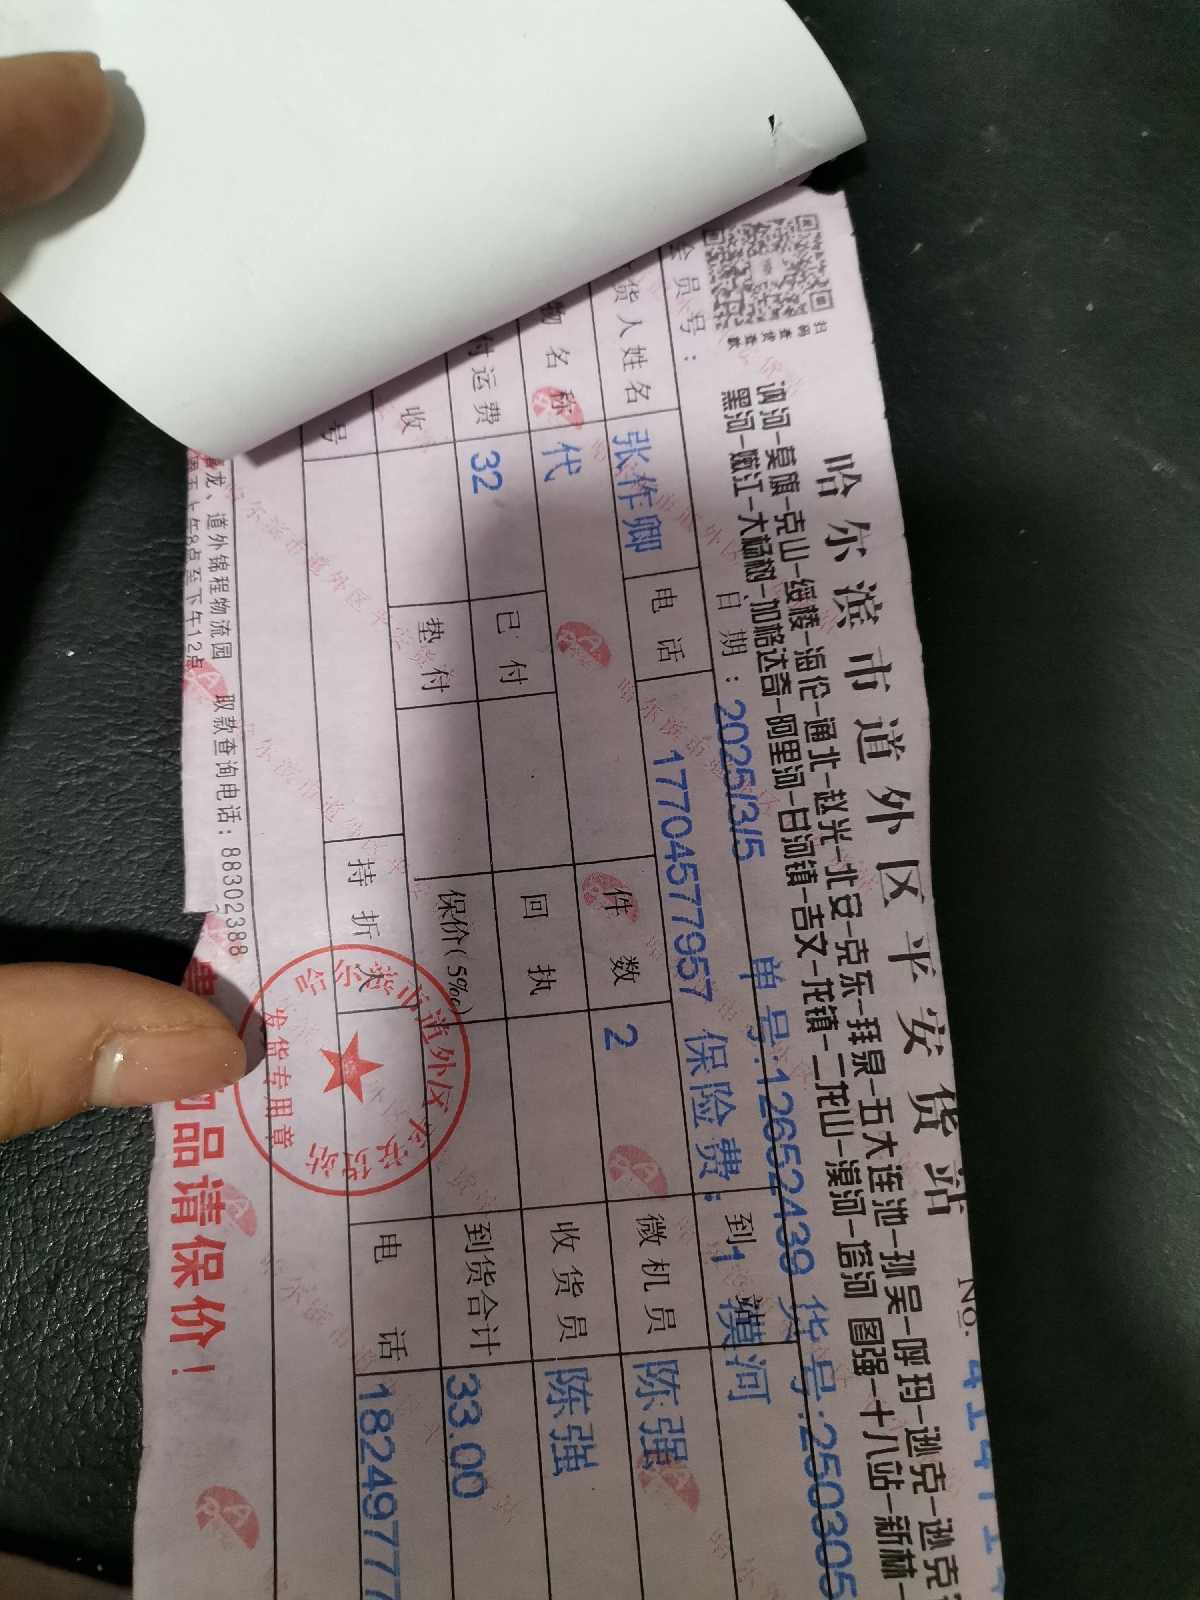 哈尔滨市道外区平安货站
No.
讷河-莫旗-克山-绥棱-海伦-通北-赵光-北安-克东-拜泉-五大连池-孙吴-呼玛-逊克-逊克
黑河-嫩江-大杨树-加格达奇-阿里河-甘河镇-吉文-龙镇-二龙山-漠河-信河 图强-十八站-新林-
扫码查货查款
会员号：
日期：2025/3/5 单号:12652439 货号:250305
货人姓名 张作卿 电话 17704577957 保险费:1 到站 漠河
物名称 代 件数 2 微机员 陈强
付运费 32 已付 回执 收货员 陈强
收 垫付 保价(5‰) 到货合计 33.00
号 持折人 电话 182497777
龙、道外锦程物流园 取款查询电话：88302388
上午8点至下午12点
物品请保价！
哈尔滨市道外区平安货站
发货专用章